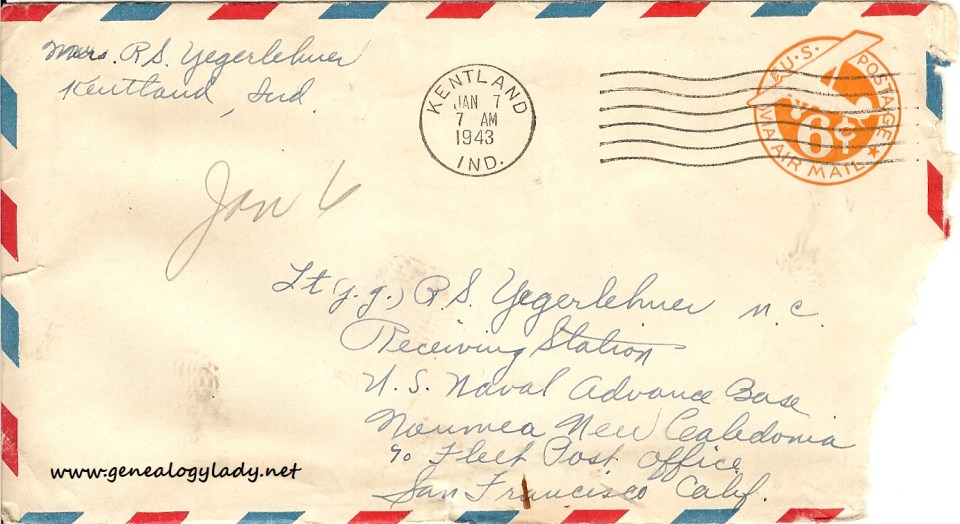 Mrs. R S. Yegerlehner
Kentland, Ind.
KENTLAND
JAN 7
7 AM
1943
IND.
U.S. POSTAGE
6¢
VIA AIR MAIL
Jan 6
Lt (j.g.) R S. Yegerlehner M.C.
Receiving Station
U. S. Naval Advance Base
Noumea New Caledonia
℅ Fleet Post Office
San Francisco Calif.
www.genealogylady.net